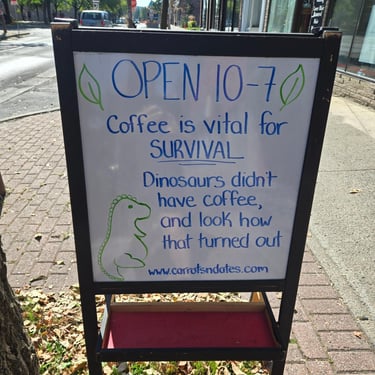 OPEN 10-7
Coffee is vital for
SURVIVAL
Dinosaurs didn't
have coffee,
and look how
that turned out
www.carrotsndates.com